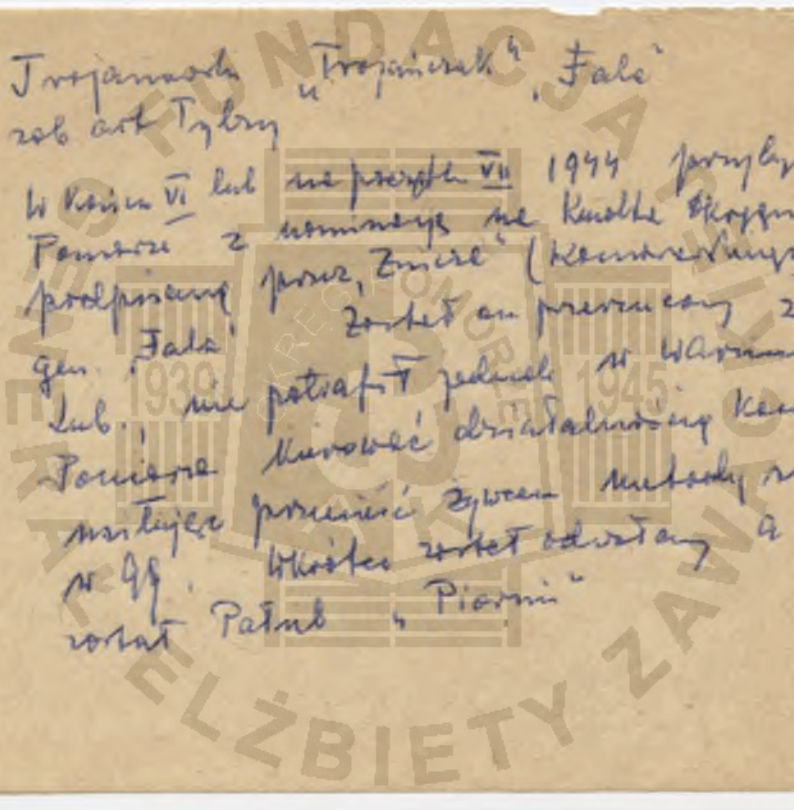 Trojanowski "Trojańczak" "Fala"
zob art Tybry
W końcu VI lub na początku VII 1944 przyby
Pomorze z nominacją na Kmdta Okręgu
podpisaną przez "Znicza" (Komorowskiego
gen. "Fala" Został on przerzucony z
Lub., nie potrafił jednak w warun
Pomorza kierować działalnością Kom
usiłując przenieść żywcem metody
w GG. Wkrótce został odwołany a
został Pałub "Piorun"
FUNDACJA GENERAŁ ELŻBIETY ZAWACKIEJ
OKRĘG POMORZE
1939 1945
AK